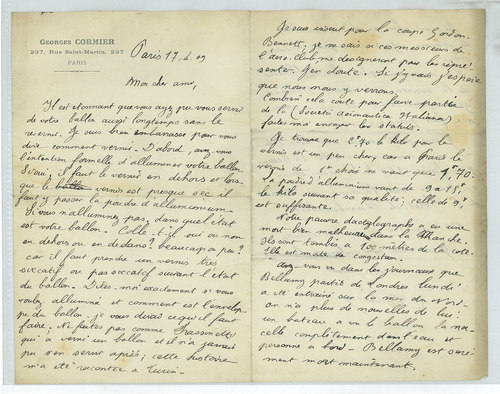 GEORGES CORMIER
237, Rue Saint-Martin, 237
PARIS
Paris 17.4.09
Mon cher ami,
Il est étonnant que vous ayez pu vous servir
de votre ballon aussi longtemps sans le
revernir. Je suis bien embarassé pour vous
dire comment vernir. D'abord, avez vous
l'intention formelle d'alluminer votre ballon.
Si oui, il faut le vernir en dehors et lors
que le vernis est presque sec il
faut y passer la poudre d'alluminium.
Si vous n'alluminez pas, dans quel état
est votre ballon. Colle-t-il oui ou non
en dehors ou en dedans? beaucoup ou peu?
car il faut prendre un vernis très
siccatif ou pas siccatif suivant l'état
du ballon. Dites-moi exactement si vous
voulez alluminé et comment est l'envelop-
pe du ballon. je vous dirai ce qu'il faut
faire. Ne faites pas comme Frassinetti
qui a verni un ballon et il n'a jamais
pu s'en servir après; cette histoire
m'a été racontée à Turin.
Je suis inscrit pour la coupe Gordon-
Bennett, je ne sais si ces messieurs de
l'aéro-club me désigneront pour les repré-
senter. J'en doute. Si j'y vais j'espère
que nous nous y verrons.
Combien cela coûte pour faire partie
de la (Societa Aeronautica Italiana)
faites moi envoyer les statuts.
Je trouve que 2f70 le kilo pour le
vernis est un peu cher, car à Paris le
vernis de 1er choix ne vaut que 1f,70.
La poudre d'alluminium vaut de 9 à 15f
le kilo suivant sa qualité; celle de 9f
est suffisante.
Notre pauvre dactylographe a eu une
mort bien malheureuse dans la Manche.
Ils sont tombés à 100 mètres de la côte.
Elle est morte de congestion.
Avez vous vu dans les journaux que
Bellamy partit de Londres lundi
a été entraîné sur la mer du nord.
On n'a plus de nouvelles de lui.
Un bateau a vu le ballon la na-
celle complètement dans l'eau et
personne à bord. Bellamy est sure-
ment mort maintenant.